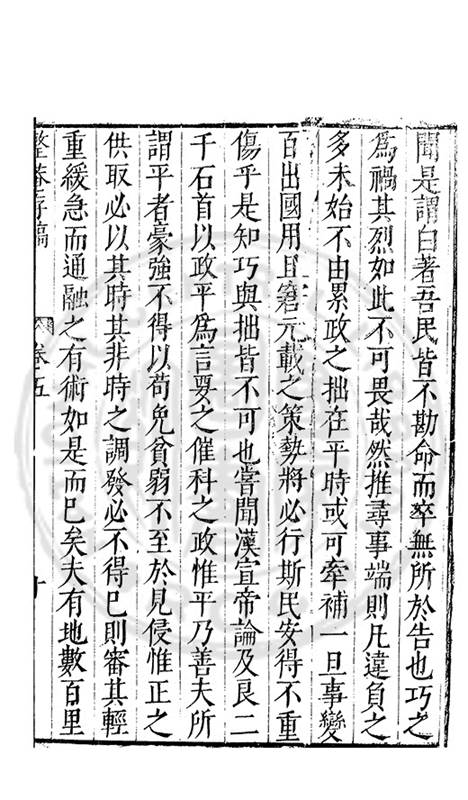 聞是謂白著吾民皆不勘命而卒無所於告也巧之
為禍其烈如此不可畏哉然推尋事端則凡違負之
多未始不由累政之拙在平時或可牽補一旦事變
百出國用且窘元載之策勢將必行斯民安得不重
傷乎是知巧與拙皆不可也嘗聞漢宣帝論及良二
千石首以政平為言要之催科之政惟平乃善夫所
謂平者豪強不得以苟免貧弱不至於見侵惟正之
供取必以其時其非時之調發必不得已則審其輕
重緩急而通融之有術如是而已矣夫有地數百里
整菴存稿
卷五
十